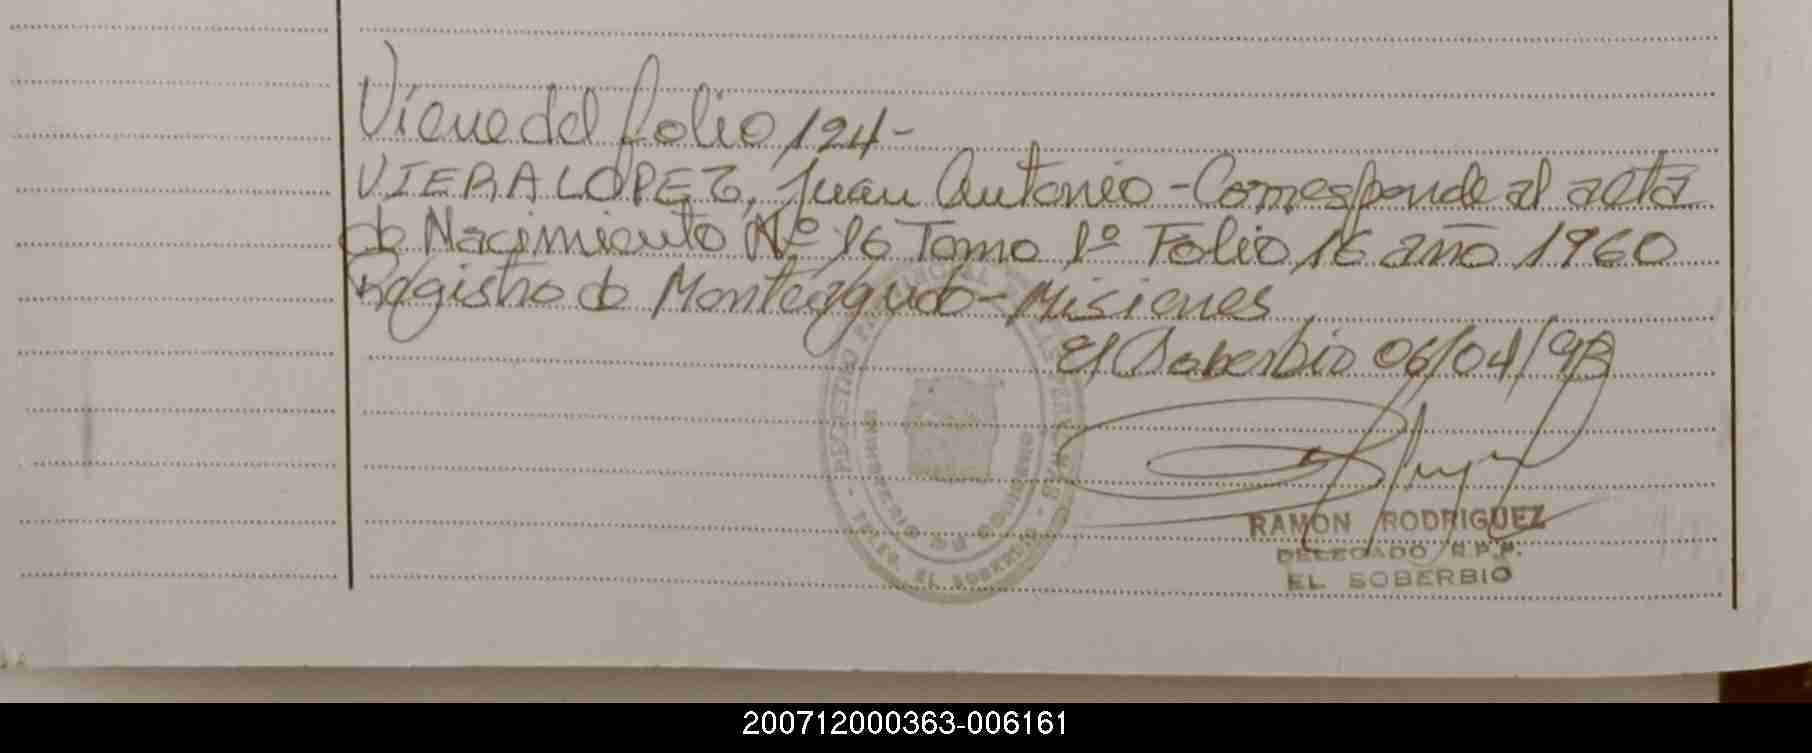 Viene del folio 124-
VIERA LOPEZ, Juan Antonio - Corresponde al acta
de Nacimiento Nº 16 Tomo 1º Folio 16 año 1960
Registro de Monteagudo - Misiones
El Soberbio 06/04/93
RAMON RODRIGUEZ
DELEGADO R.P.P.
EL SOBERBIO
200712000363-006161